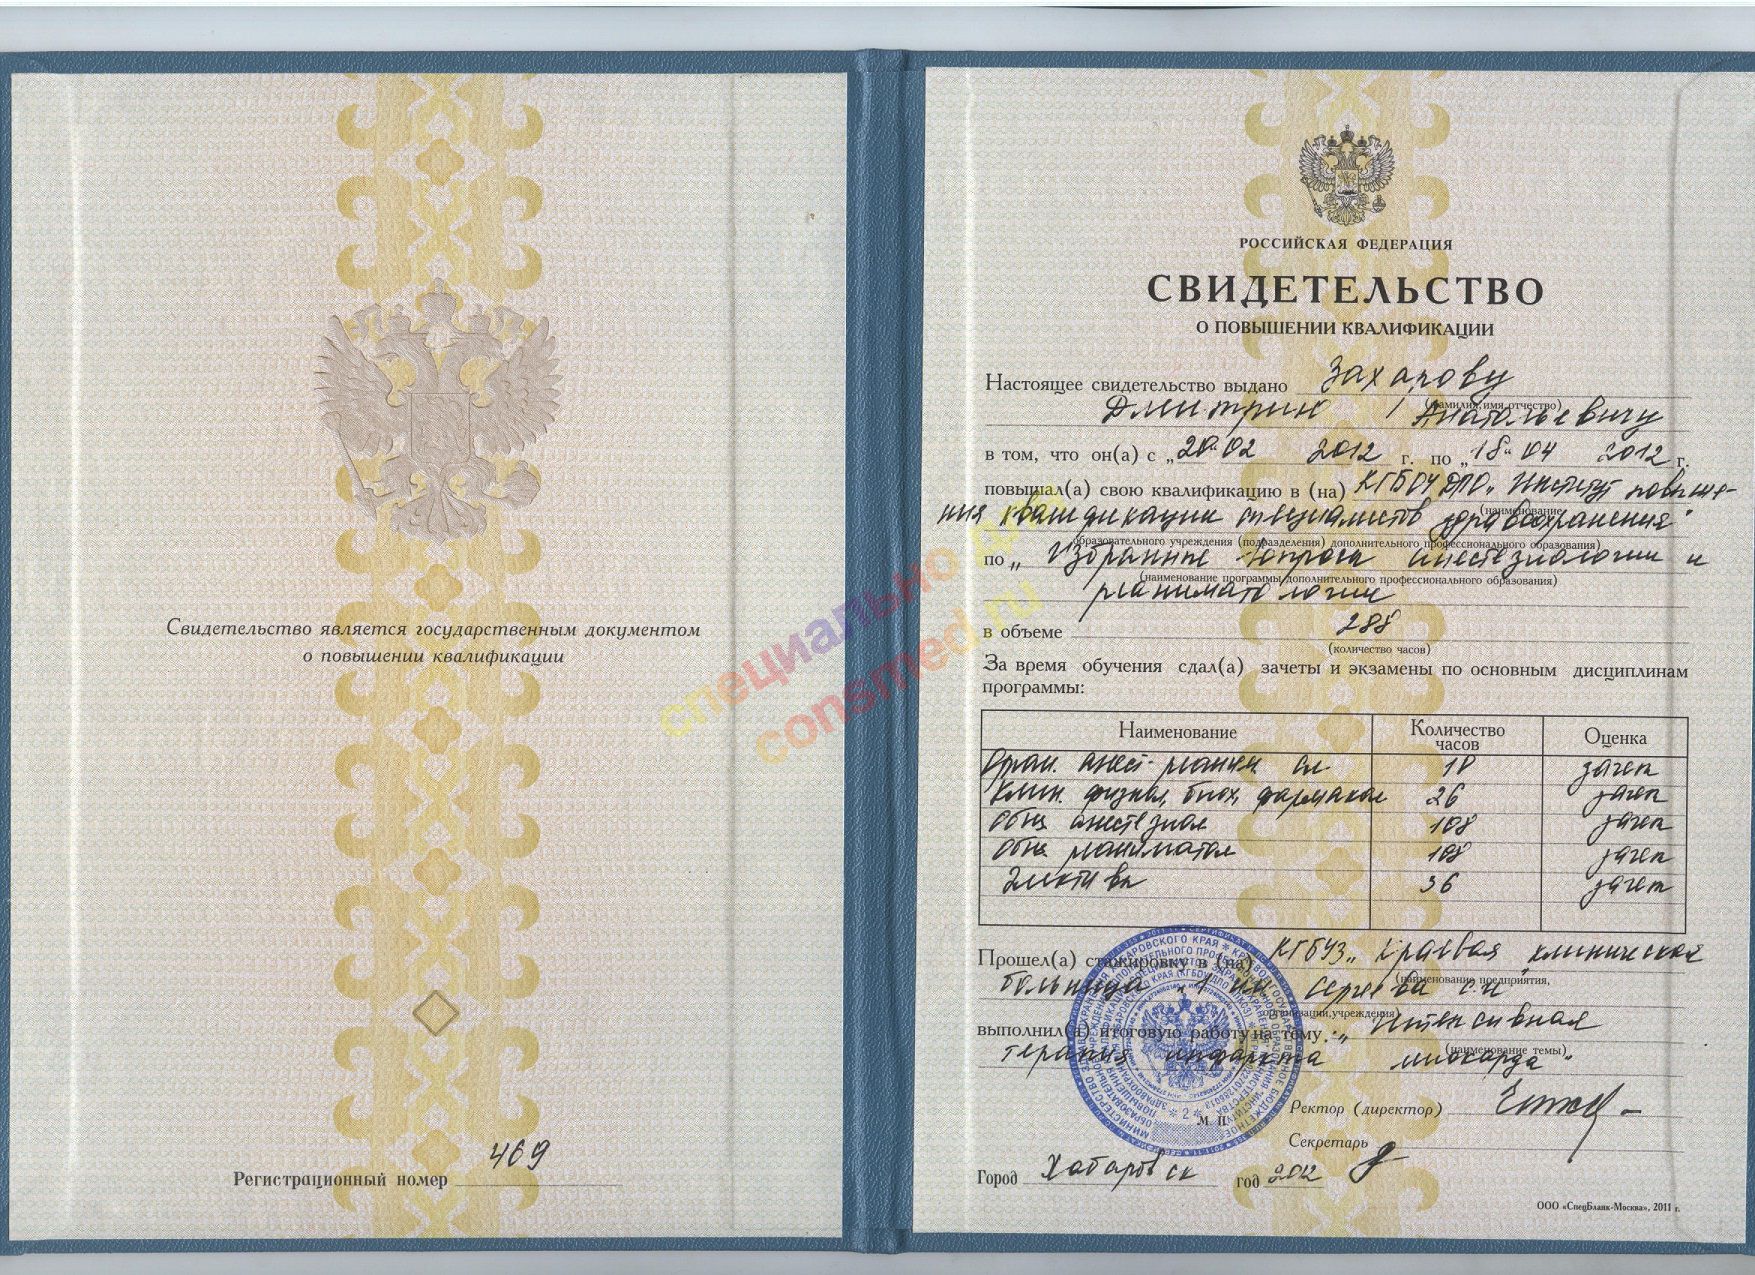 Свидетельство является государственным документом
о повышении квалификации
Регистрационный номер 469
специально для
consmed.ru
РОССИЙСКАЯ ФЕДЕРАЦИЯ
СВИДЕТЕЛЬСТВО
О ПОВЫШЕНИИ КВАЛИФИКАЦИИ
Настоящее свидетельство выдано Захарову
(фамилия, имя, отчество)
Дмитрию Анатольевичу
в том, что он(а) с „20" 02 2012 г. по „18" 04 2012 г.
повышал(а) свою квалификацию в (на) КГБОУ ДПО „Институт повыше-
(наименование
ния квалификации специалистов здравоохранения"
образовательного учреждения (подразделения) дополнительного профессионального образования)
по „Избранные вопросы анестезиологии и
(наименование программы дополнительного профессионального образования)
реаниматологии
в объеме 288
(количество часов)
За время обучения сдал(а) зачеты и экзамены по основным дисциплинам
программы:
Наименование Количество часов Оценка
Орган. анест-реаним. сл 18 зачет
Клин. физиол, биох, фармакол 26 зачет
Общ анестезиол 108 зачет
Общ реаниматол 108 зачет
Элективы 36 зачет
Прошел(а) стажировку в (на) КГБУЗ „Краевая клиническая
(наименование предприятия,
больница №1" им Сергеева С.И
организации, учреждения)
выполнил(а) итоговую работу на тему: „Интенсивная
(наименование темы)
терапия инфаркта миокарда"
М. П.
Ректор (директор)
Секретарь
Город Хабаровск год 2012
ООО «СпецБланк-Москва», 2011 г.